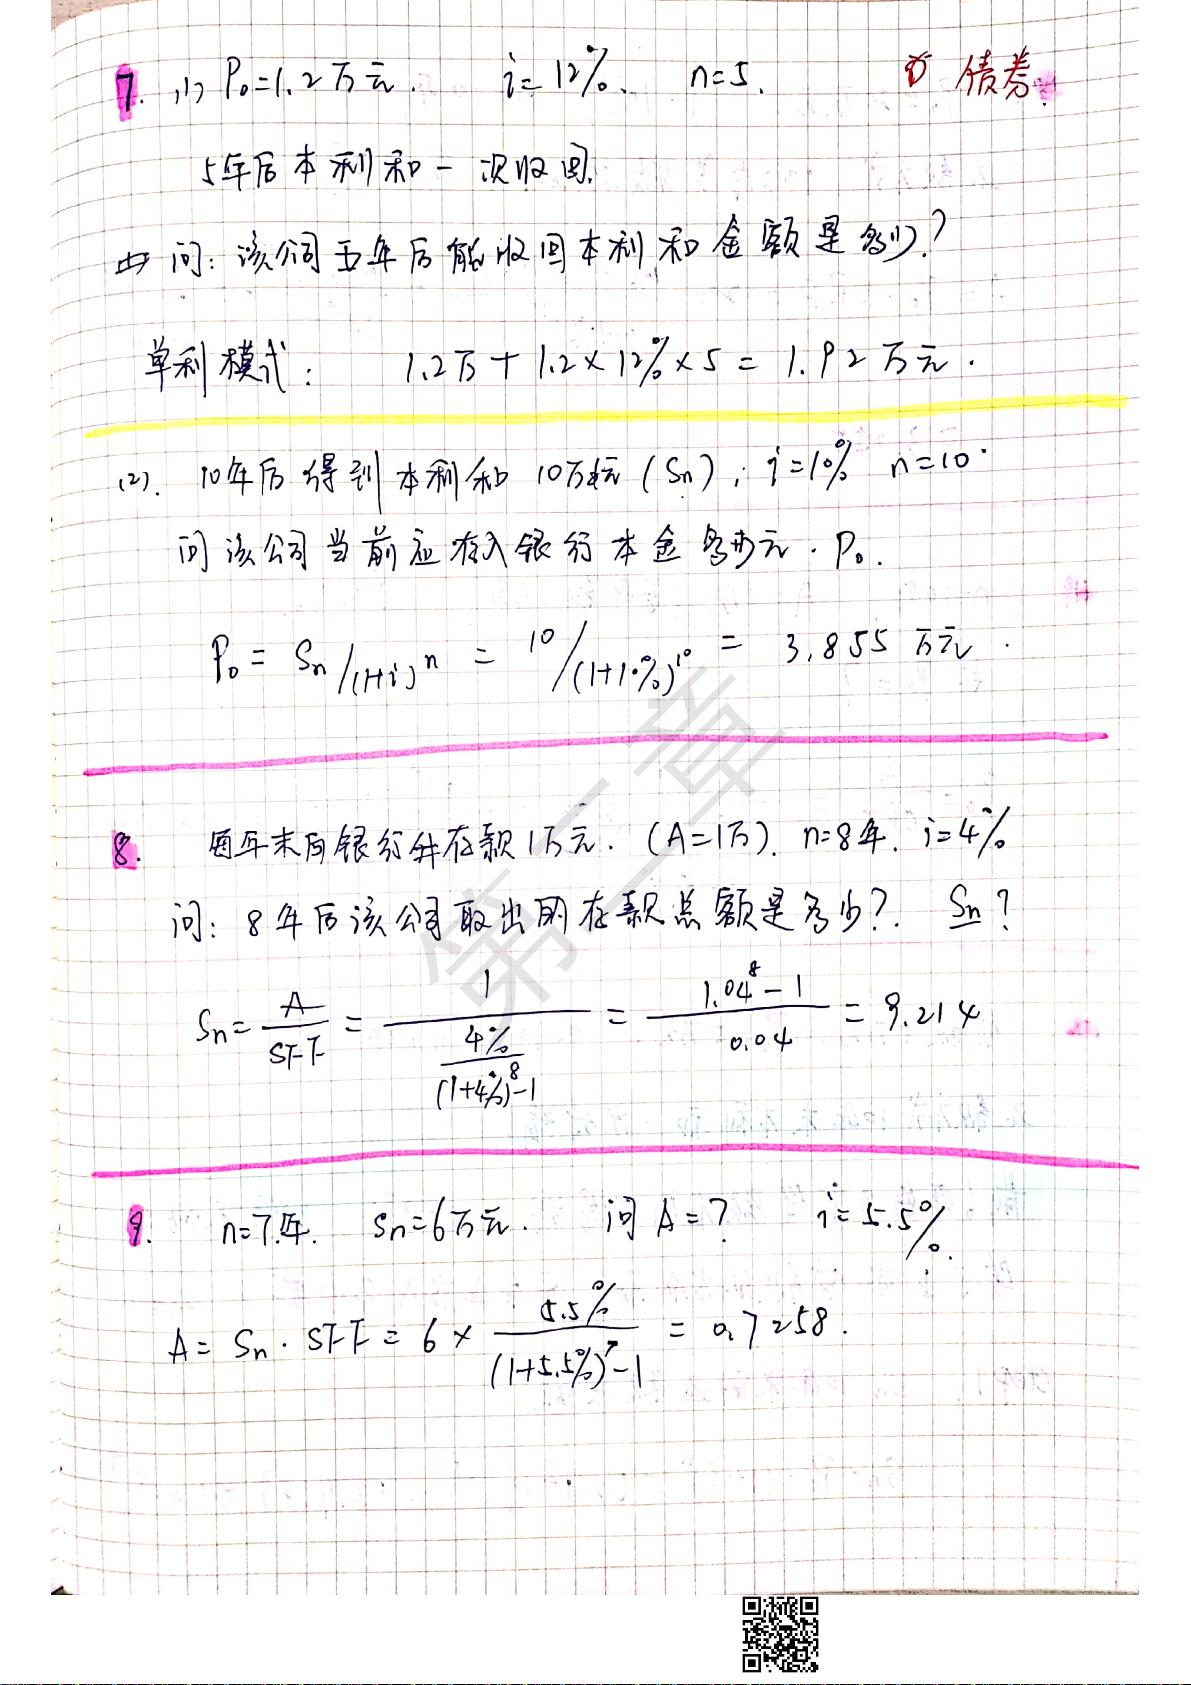 7. (1) P₀=1.2万元. i=12%. n=5. 债券.
5年后本利和一次收回.
问: 该公司五年后能收回本利和金额是多少?
单利模式: 1.2万+1.2×12%×5=1.92万元.
(2). 10年后得到本利和10万元(Sn); i=10% n=10.
问该公司当前应存入银行本金多少元. P₀.
P₀=Sn/(1+i)ⁿ = 10/(1+10%)¹⁰ = 3.855万元.
8. 每年末向银行存款1万元. (A=1万). n=8年. i=4%
问: 8年后该公司取出的存款总额是多少?. Sn?
Sn= A/SFF = 1/(4%/((1+4%)⁸-1)) = (1.04⁸-1)/0.04 = 9.214
9. n=7年. Sn=6万元. 问A=? i=5.5%.
A=Sn·SFF=6× 5.5%/((1+5.5%)⁷-1) =0.7258.
第二章